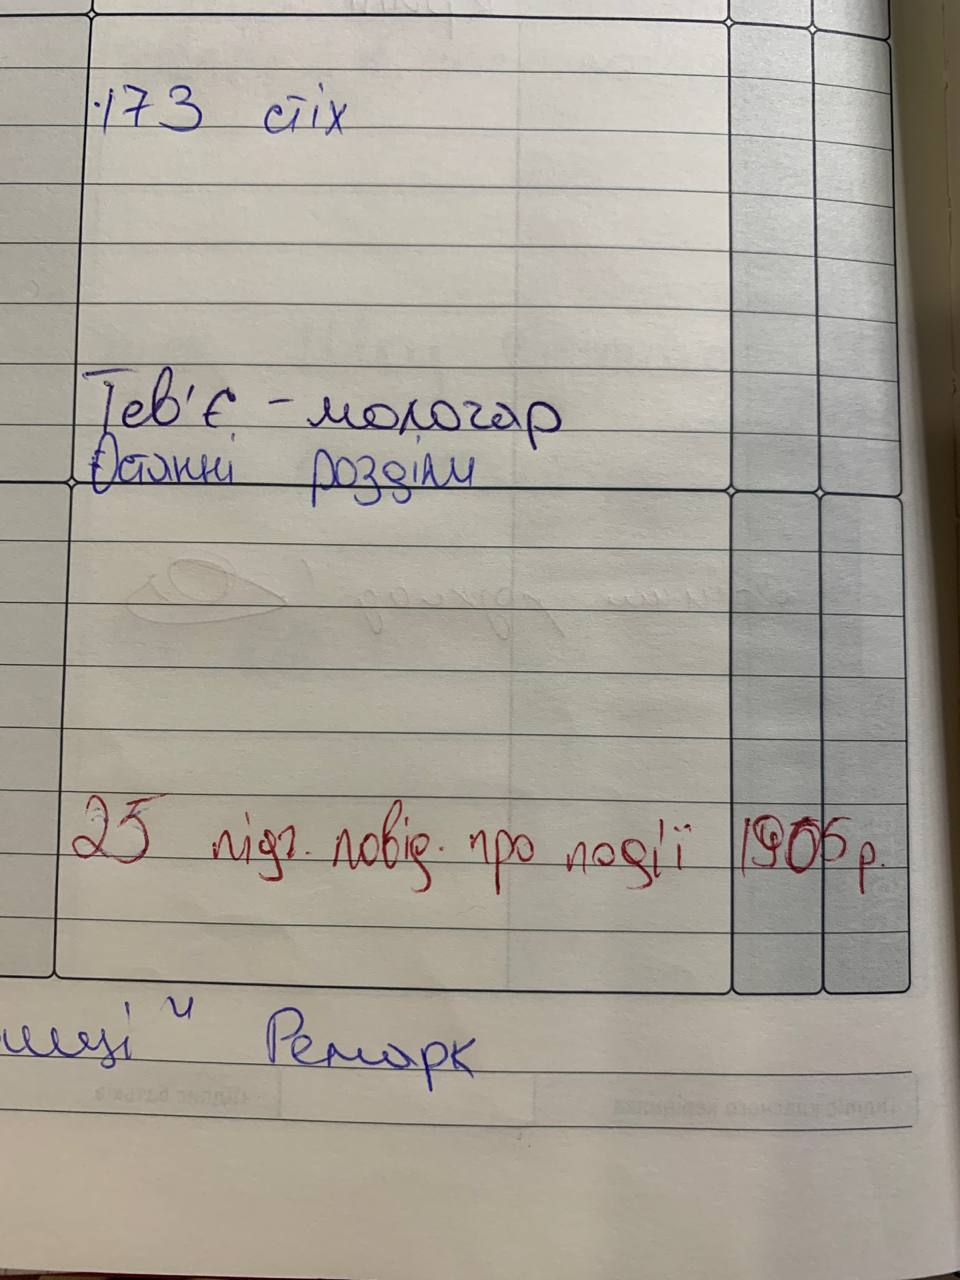 173 стіх
Тев'є - молочар
Останні розділи
25 підг. повід. про події 1905 р.
" Ремарк